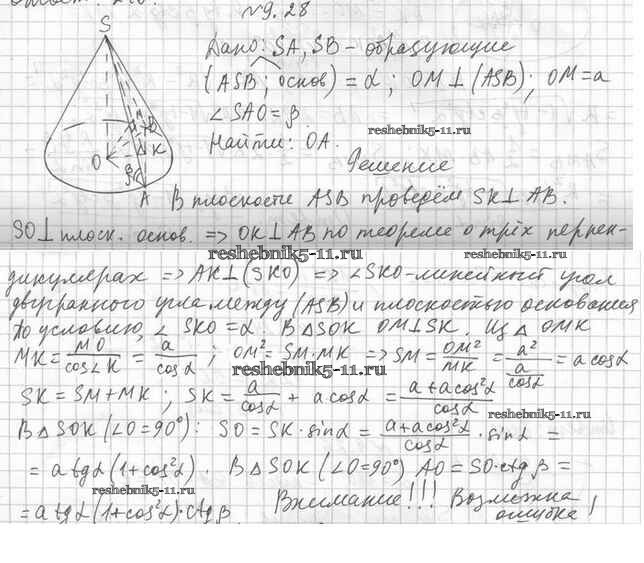 №9.28
S
Дано: SA, SB – образующие
(ASB; основ) = α; OM⊥(ASB); OM = a
∠SAO = β
reshebnik5-11.ru
Найти: OA.
Решение
M
B
O
K
β
A
В плоскости ASB проведём SK⊥AB.
SO⊥плоск. основ. => OK⊥AB по теореме о трёх перпен-
reshebnik5-11.ru
дикулярах => AK⊥(SKO) => ∠SKO – линейный угол
двугранного угла между (ASB) и плоскостью основания
По условию, ∠SKO = α. В △SOK OM⊥SK. Из △OMK
MK = MO/cos∠K = a/cosα; OM² = SM·MK => SM = OM²/MK = a²/(a/cosα) = a cosα
reshebnik5-11.ru
SK = SM + MK; SK = a/cosα + a cosα = (a + a cos²α)/cosα
reshebnik5-11.ru
В △SOK (∠O = 90°): SO = SK·sinα = (a + a cos²α)/cosα · sinα =
= a tgα (1 + cos²α). В △SOK (∠O = 90°) AO = SO·ctgβ =
reshebnik5-11.ru
= a tgα (1 + cos²α)·ctgβ.
Внимание!!! Возможна
ошибка!